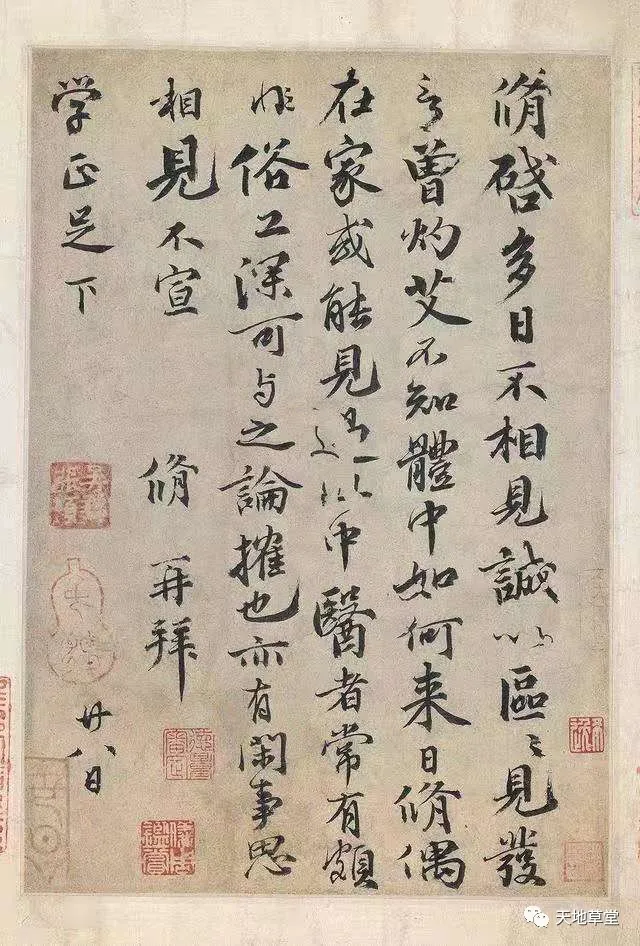 脩啓多日不相見誠以區〻見發
言曾灼艾不知體中如何来日脩偶
在家或能見過此中醫者常有頗
非俗工深可与之論搉也亦有閑事思
相見不宣
脩再拜
学正足下
廿八日
天地草堂